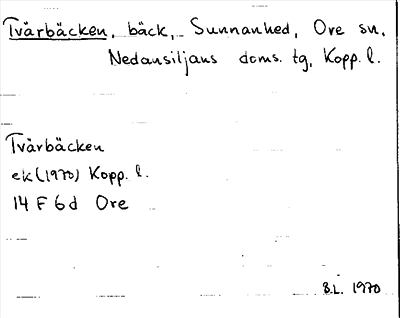 Tvärbäcken, bäck, Sunnanhed, Ore sn,
Nedansiljans doms. tg, Kopp. l.
Tvärbäcken
ek (1970) Kopp. l.
14 F 6 d Ore
B.L. 1970